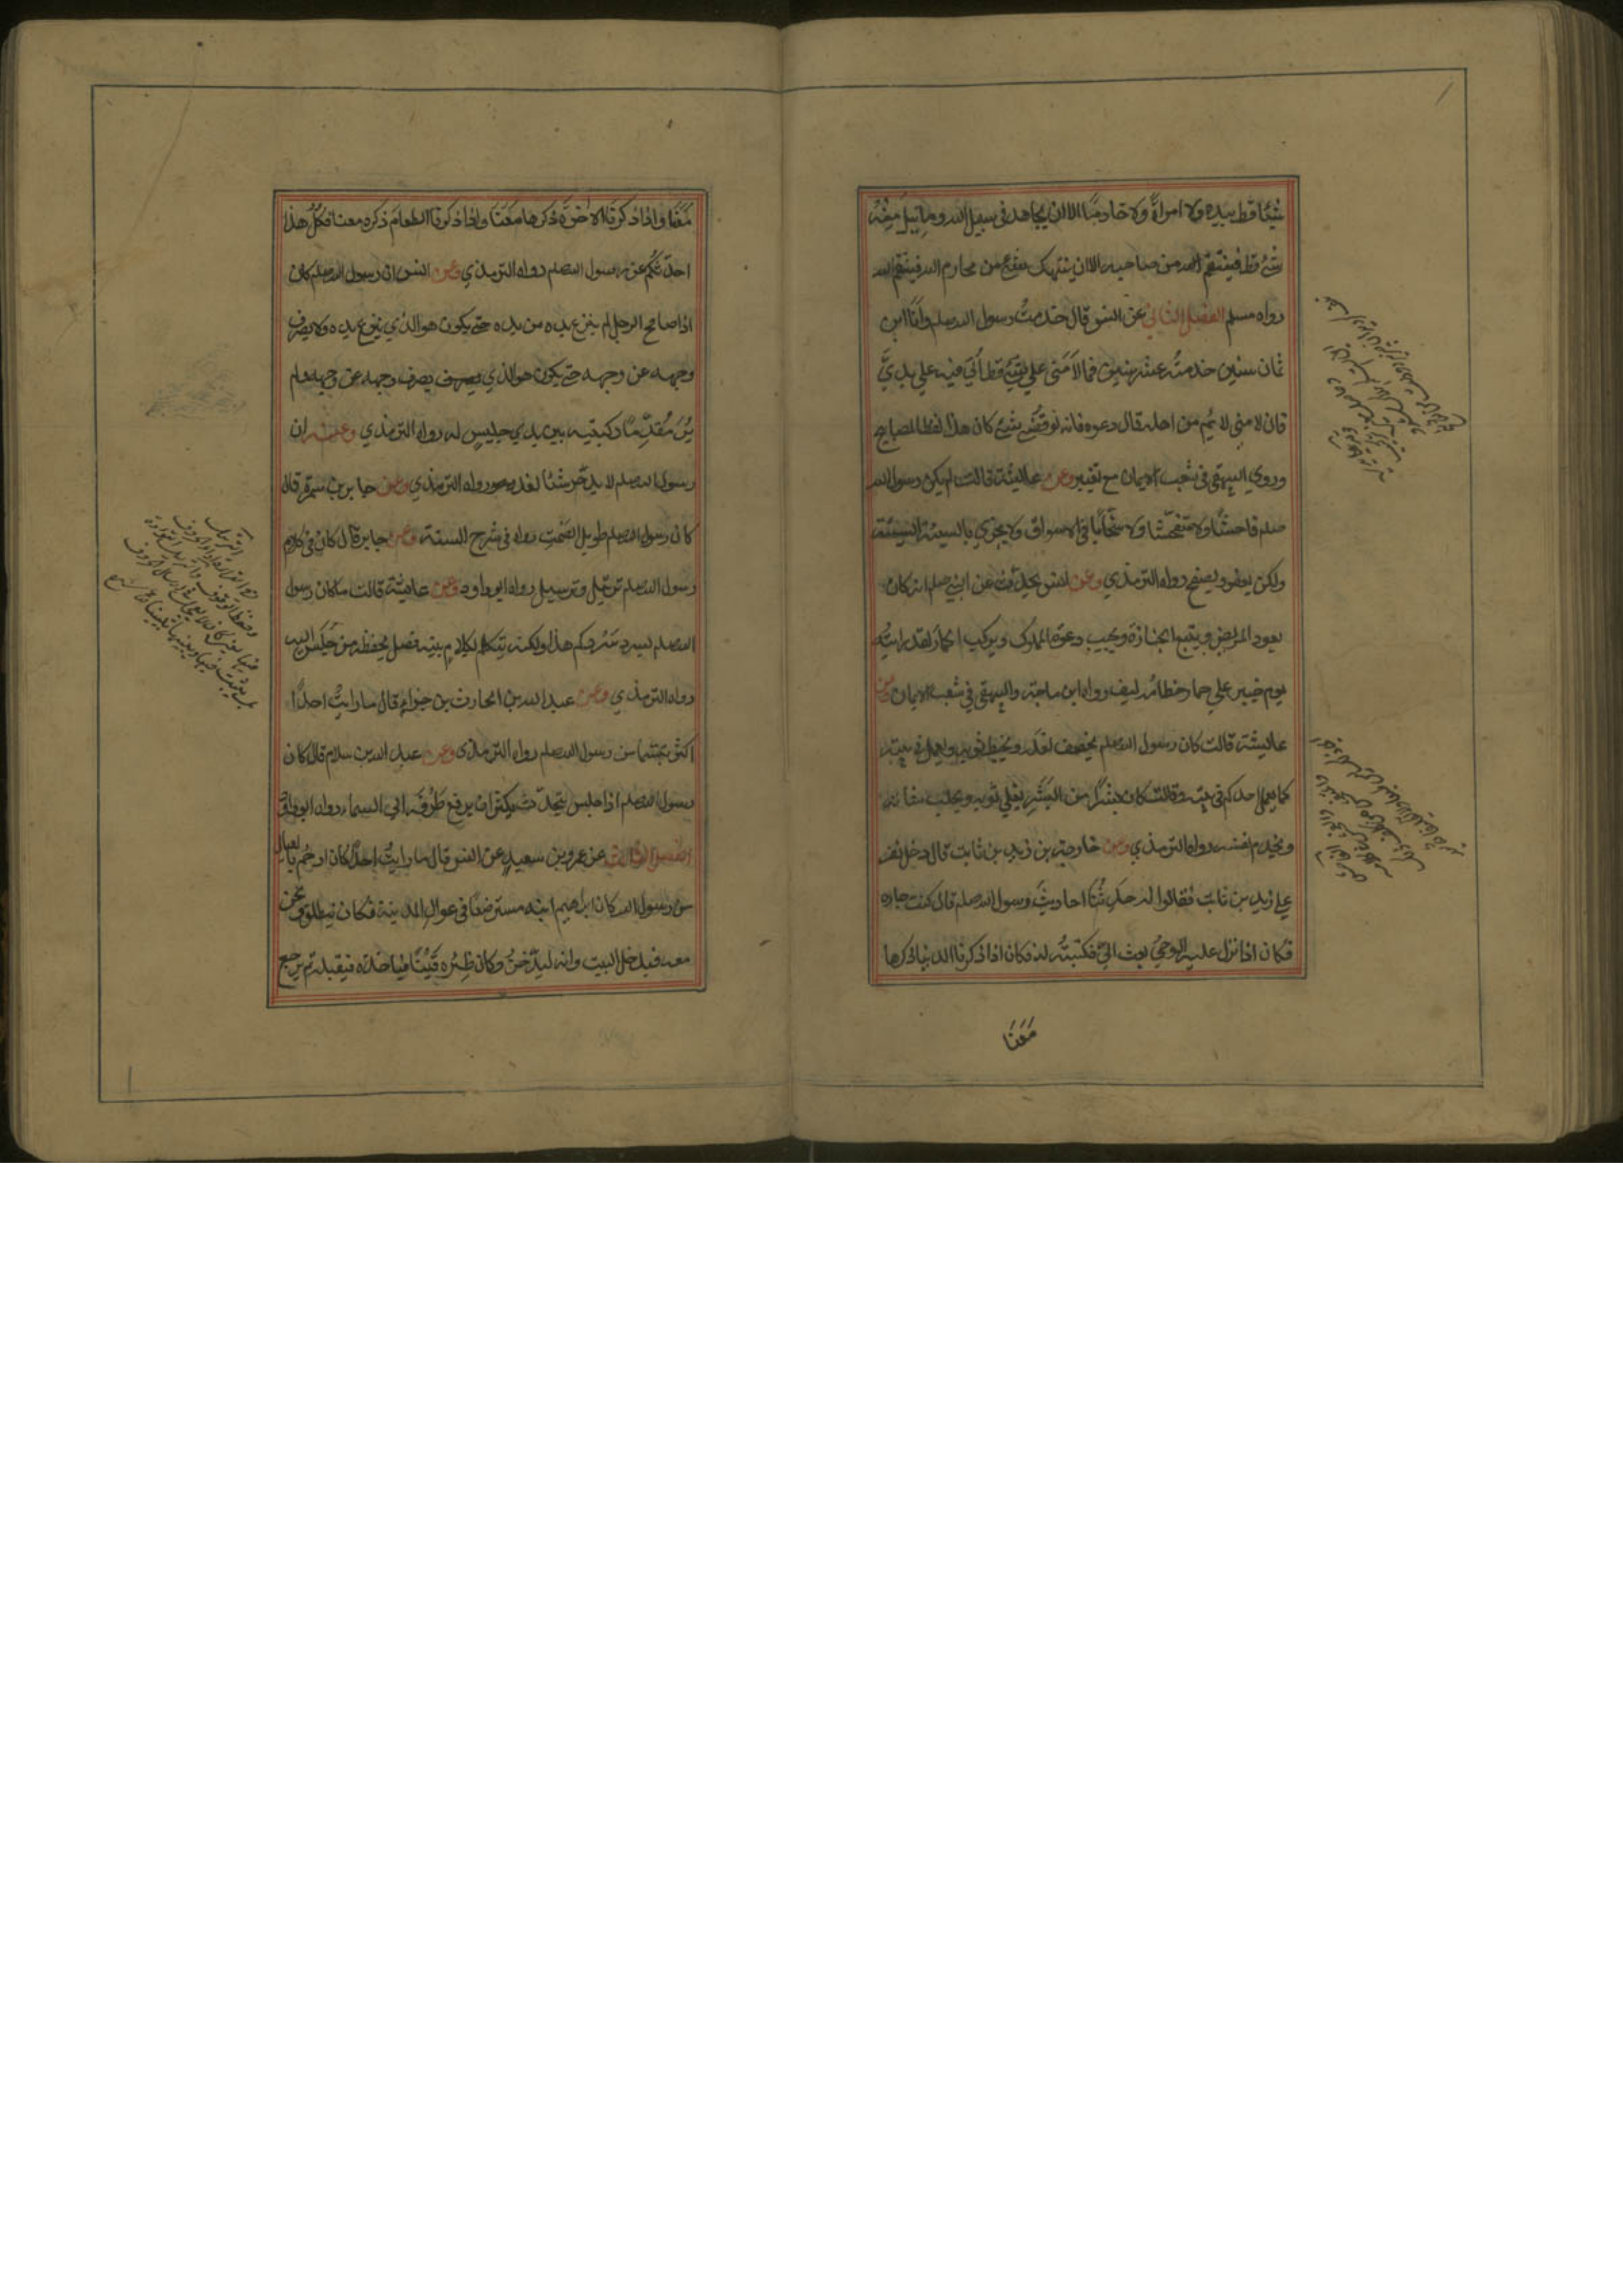 شيئا قط بيده ولا امراةً ولا خادمًا الا ان يجاهد في سبيل الله وما نيل منه
شئ قط فينتقم من صاحبه الا ان ينتهك شئ من محارم الله فينتقم لله
رواه مسلم الفصل الثاني عن انس قال خدمتُ رسول الله صلم وانا ابن
ثمان سنين خدمته عشر سنين فما لامني على شئ قط أُتي فيه على يديَّ
فان لامني لائم من اهله قال دعوه فانه لو قضي شئ كان هذا لفظ المصابيح
وروي البيهقي في شعب الايمان مع تغيير وعن عائشة قالت لم يكن رسول الله
صلم فاحشًا ولا متفحّشا ولا سخّابًا في الاسواق ولا يجزي بالسيئة السيئة
ولكن يعفو ويصفح رواه الترمذي وعن انس يحدّث عن النبي صلم انه كان
يعود المريض ويتبع الجنازة ويجيب دعوة المملوك ويركب الحمار لقد رايتُه
يوم خيبر على حمار خطامُه ليف رواه ابن ماجة والبيهقي في شعب الايمان وعن
عائيشة قالت كان رسول الله صلم يخصف نعله ويخيط ثوبه ويعمل في بيته
كما يعمل احدكم في بيته وقالت كان بشرًا من البشر يفلي ثوبه ويحلب شاته
ويخدم نفسه رواه الترمذي وعن خارجة بن زيد بن ثابت قال دخل نفر
على زيد بن ثابت فقالوا له حدِّثنا احاديثَ رسول الله صلم قال كنت جاره
فكان اذا نزل عليه الوحيُ بعث اليَّ فكتبتُه له فكان اذا ذكرنا الدنيا ذكرها
مَعَنَا
مَعَنا واذا ذكرنا الاخرةَ ذكرها مَعَنَا واذا ذكرنا الطعامَ ذكره معنا فكلُّ هذا
احدّثكُم عن رسول الله صلم رواه الترمذي وعن انس ان رسول الله صلم كان
اذا صافح الرجل لم ينزع يده من يده حتى يكون هو الذي ينزع يده ولا يصرف
وجهه عن وجهه حتى يكون هو الذي يصرف وجهه عن وجهه ولم
يُرَ مُقدِّمًا ركبتيه بين يدي جليسٍ له رواه الترمذي وعنه ان
رسول الله صلم لا يدّخر شيئا لغد رواه الترمذي وعن جابر بن سمرة قال
كان رسول الله صلم طويل الصَّمْت رواه في شرح السنة وعن جابر قال كان في كلام
رسول الله صلم ترتيل وترسيل رواه ابو داود وعن عائيشة قالت ما كان رسول
الله صلم يسرد سَرْدكم هذا ولكنه يتكلم بكلام بينه فصل يحفظه من جَلَسَ اليه
رواه الترمذي وعن عبد الله بن الحارث بن جزء قال ما رايتُ احدًا
اكثر تبسّما من رسول الله صلم رواه الترمذي وعن عبد الله بن سلام قال كان
رسول الله صلم اذا جلس يتحدّث يكثر ان يرفع طَرْفَه الى السماء رواه ابو داود
الفصل الثالث عن عمرو بن سعيدٍ عن انس قال ما رايتُ احدًا كان ارحَم بالعيال
من رسول الله كان ابراهيم ابنه مسترضعًا في عوالي المدينة فكان ينطلق ونحن
معه فيدخل البيت وانه ليدَّخن وكان ظِئره قَيْنًا فياخذه فيقبله ثم يرجع